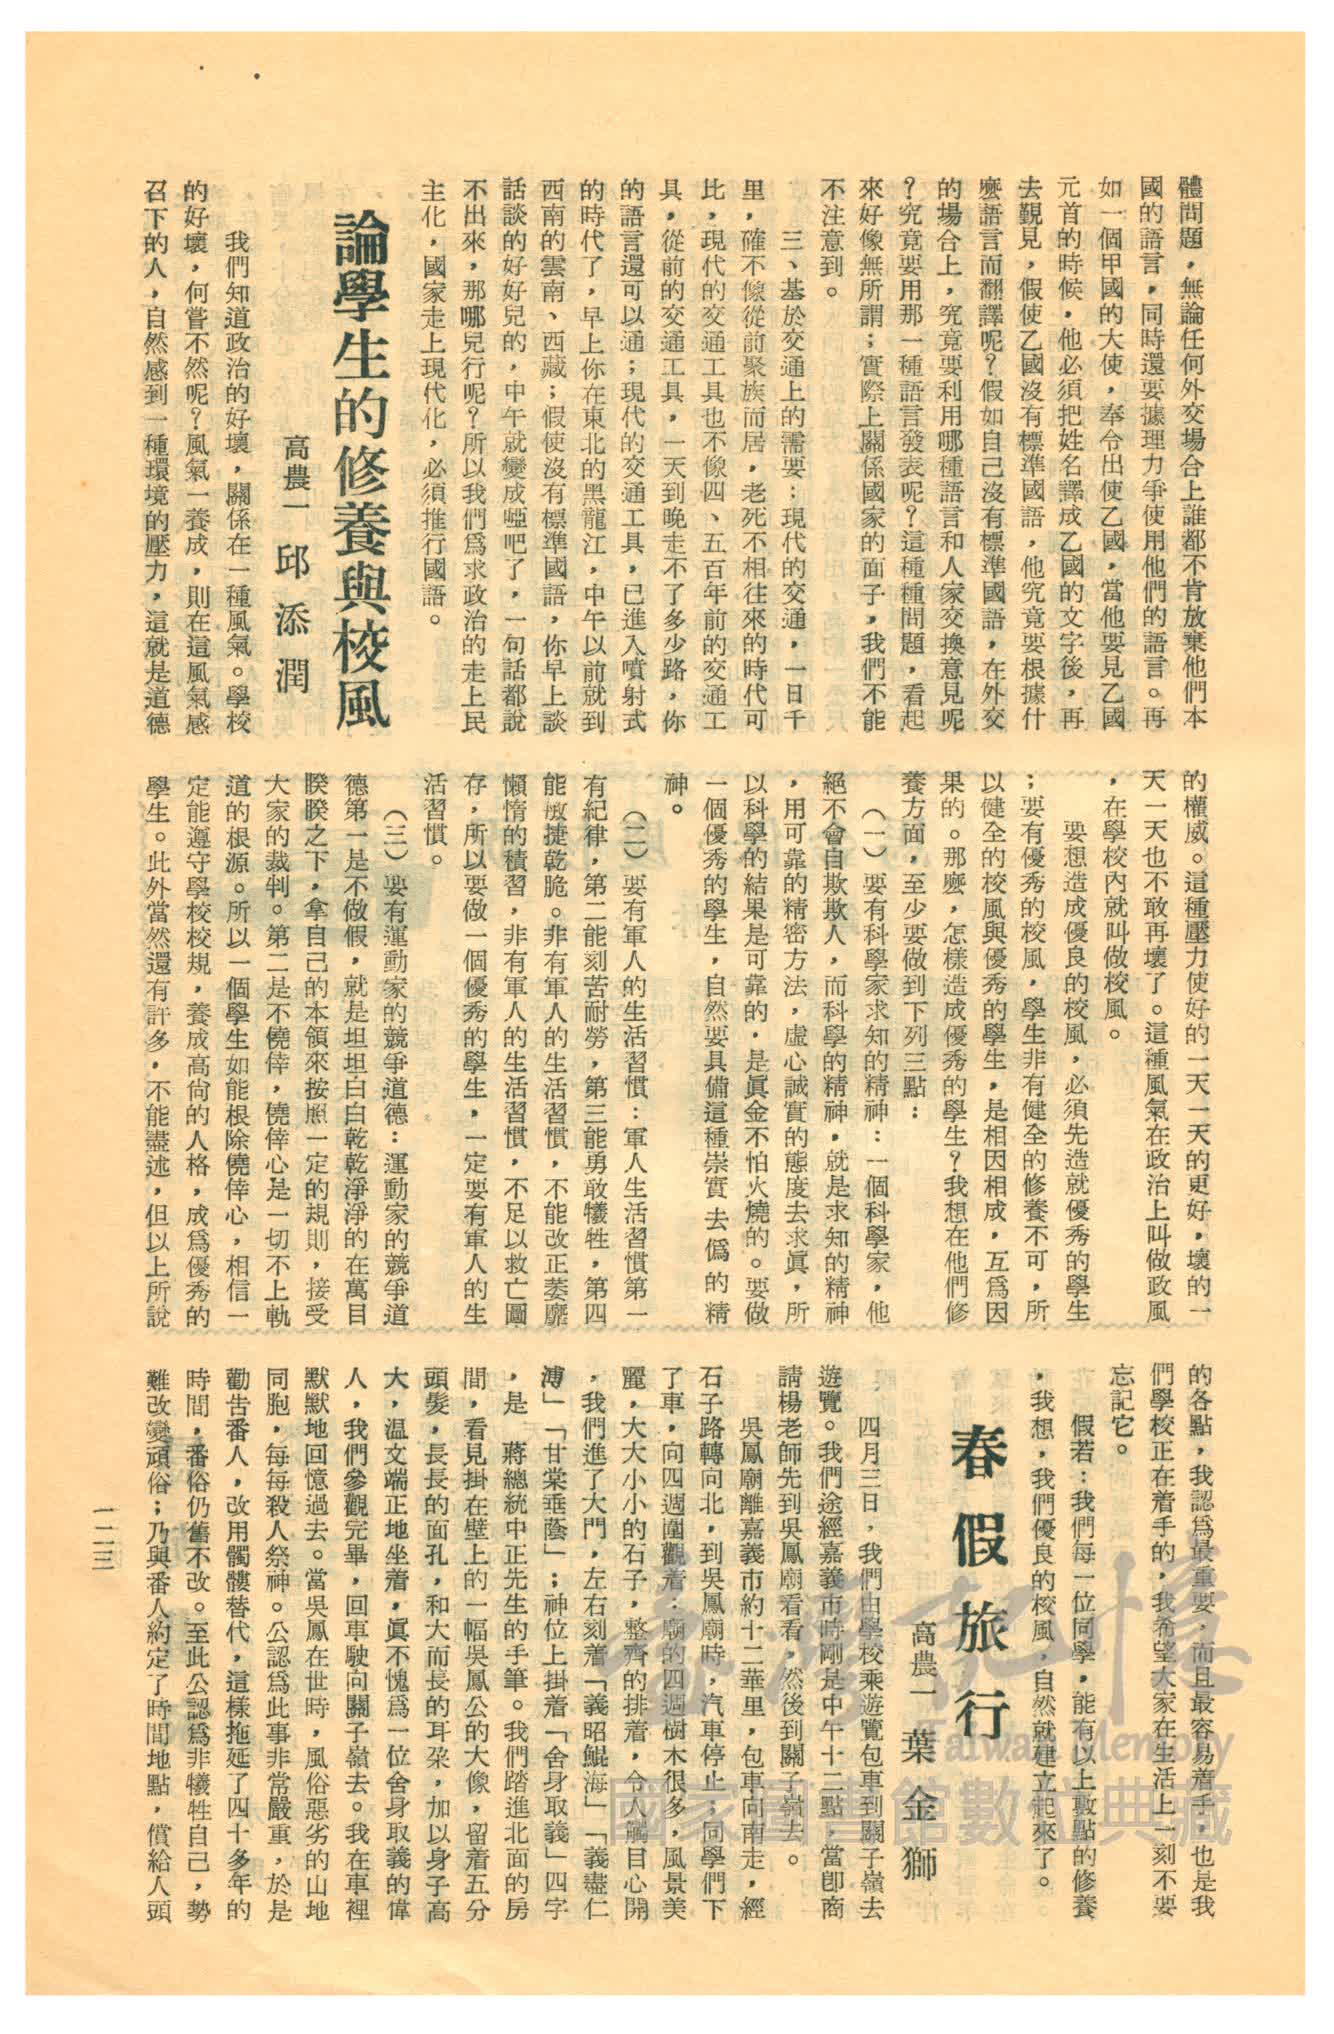 體問題，無論任何外交場合上誰都不肯放棄他們本
國的語言，同時還要據理力爭使用他們的語言。再
如一個甲國的大使，奉令出使乙國，當他要見乙國
元首的時候，他必須把姓名譯成乙國的文字後，再
去覲見，假使乙國沒有標準國語，他究竟要根據什
麽語言而翻譯呢？假如自己沒有標準國語，在外交
的場合上，究竟要利用哪種語言和人家交換意見呢
？究竟要用那一種語言發表呢？這種種問題，看起
來好像無所謂；實際上關係國家的面子，我們不能
不注意到。
三、基於交通上的需要：現代的交通，一日千
里，確不像從前聚族而居，老死不相往來的時代可
比，現代的交通工具也不像四、五百年前的交通工
具，從前的交通工具，一天到晚走不了多少路，你
的語言還可以通；現代的交通工具，已進入噴射式
的時代了，早上你在東北的黑龍江，中午以前就到
西南的雲南、西藏；假使沒有標準國語，你早上談
話談的好好兒的，中午就變成啞吧了，一句話都說
不出來，那哪兒行呢？所以我們爲求政治的走上民
主化，國家走上現代化，必須推行國語。
論學生的修養與校風
高農一　邱添潤
我們知道政治的好壞，關係在一種風氣。學校
的好壞，何嘗不然呢？風氣一養成，則在這風氣感
召下的人，自然感到一種環境的壓力，這就是道德
的權威。這種壓力使好的一天一天的更好，壞的一
天一天也不敢再壞了。這種風氣在政治上叫做政風
，在學校內就叫做校風。
要想造成優良的校風，必須先造就優秀的學生
；要有優秀的校風，學生非有健全的修養不可，所
以健全的校風與優秀的學生，是相因相成，互爲因
果的。那麽，怎樣造成優秀的學生？我想在他們修
養方面，至少要做到下列三點：
（一）要有科學家求知的精神：一個科學家，他
絕不會自欺欺人，而科學的精神，就是求知的精神
，用可靠的精密方法，虛心誠實的態度去求眞，所
以科學的結果是可靠的，是眞金不怕火燒的。要做
一個優秀的學生，自然要具備這種崇實去僞的精
神。
（二）要有軍人的生活習慣：軍人生活習慣第一
有紀律，第二能刻苦耐勞，第三能勇敢犧牲，第四
能敏捷乾脆。非有軍人的生活習慣，不能改正萎靡
懶惰的積習，非有軍人的生活習慣，不足以救亡圖
存，所以要做一個優秀的學生，一定要有軍人的生
活習慣。
（三）要有運動家的競爭道德：運動家的競爭道
德第一是不做假，就是坦坦白白乾乾淨淨的在萬目
睽睽之下，拿自己的本領來按照一定的規則，接受
大家的裁判。第二是不僥倖，僥倖心是一切不上軌
道的根源。所以一個學生如能根除僥倖心，相信一
定能遵守學校校規，養成高尙的人格，成爲優秀的
學生。此外當然還有許多，不能盡述，但以上所說
的各點，我認爲最重要，而且最容易着手，也是我
們學校正在着手的，我希望大家在生活上一刻不要
忘記它。
假若：我們每一位同學，能有以上數點的修養
，我想，我們優良的校風，自然就建立起來了。
春假旅行
高農一　葉金獅
四月三日，我們由學校乘遊覽包車到關子嶺去
遊覽。我們途經嘉義市時剛是中午十二點，當卽商
請楊老師先到吳鳳廟看看，然後到關子嶺去。
吳鳳廟離嘉義市約十二華里，包車向南走，經
石子路轉向北，到吳鳳廟時，汽車停止，同學們下
了車，向四週圍觀着：廟的四週樹木很多，風景美
麗，大大小小的石子，整齊的排着，令人觸目心開
，我們進了大門，左右刻着「義昭鯤海」「義盡仁
溥」「甘棠垂蔭」；神位上掛着「舍身取義」四字
，是　蔣總統中正先生的手筆。我們踏進北面的房
間，看見掛在壁上的一幅吳鳳公的大像，留着五分
頭髮，長長的面孔，和大而長的耳朶，加以身子高
大，溫文端正地坐着，眞不愧爲一位舍身取義的偉
人，我們參觀完畢，回車駛向關子嶺去。我在車裡
默默地回憶過去。當吳鳳在世時，風俗惡劣的山地
同胞，每每殺人祭神。公認爲此事非常嚴重，於是
勸告番人，改用髑髏替代，這樣拖延了四十多年的
時間，番俗仍舊不改。至此公認爲非犧牲自己，勢
難改變頑俗；乃與番人約定了時間地點，償給人頭
一二三
臺灣記憶
Taiwan Memory
國家圖書館數位典藏